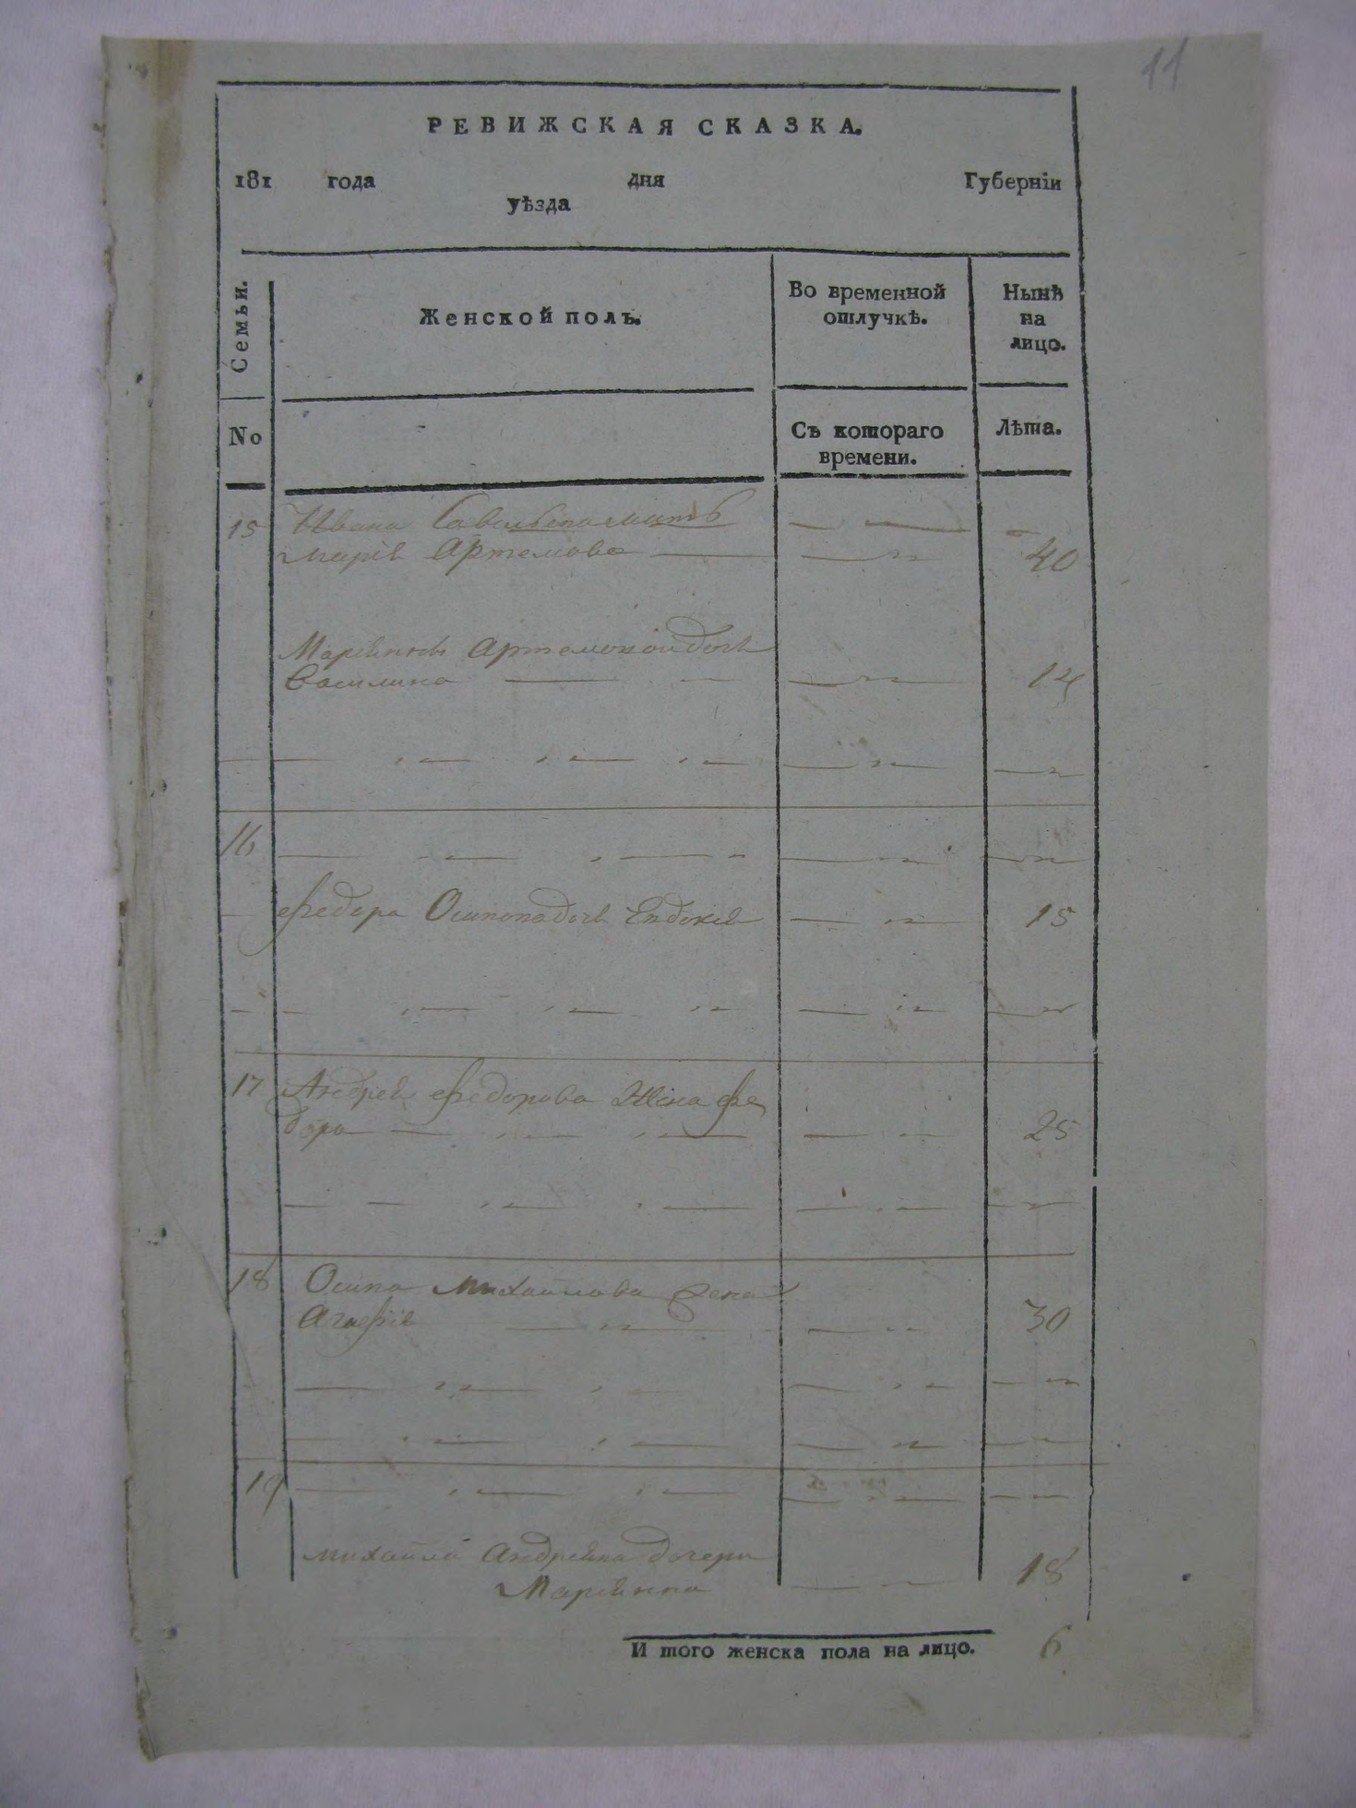 11
РЕВИЖСКАЯ СКАЗКА.
181 года дня Губерніи
уѣзда
Семьи. Женской полъ. Во временной отлучкѣ. Нынѣ на лицо.
No Съ котораго времени. Лѣта.
15 Ивана
Марія Артемова 40
Артемовой дочь
Василина 14
16
Федора Осипова дочь Евдокія 15
17 Андрея Федорова жена Фе
дора 25
18 Осипа Михайлова жена
Агафія 30
19
Михайла Андреева дочери
18
И того женска пола на лицо. 6